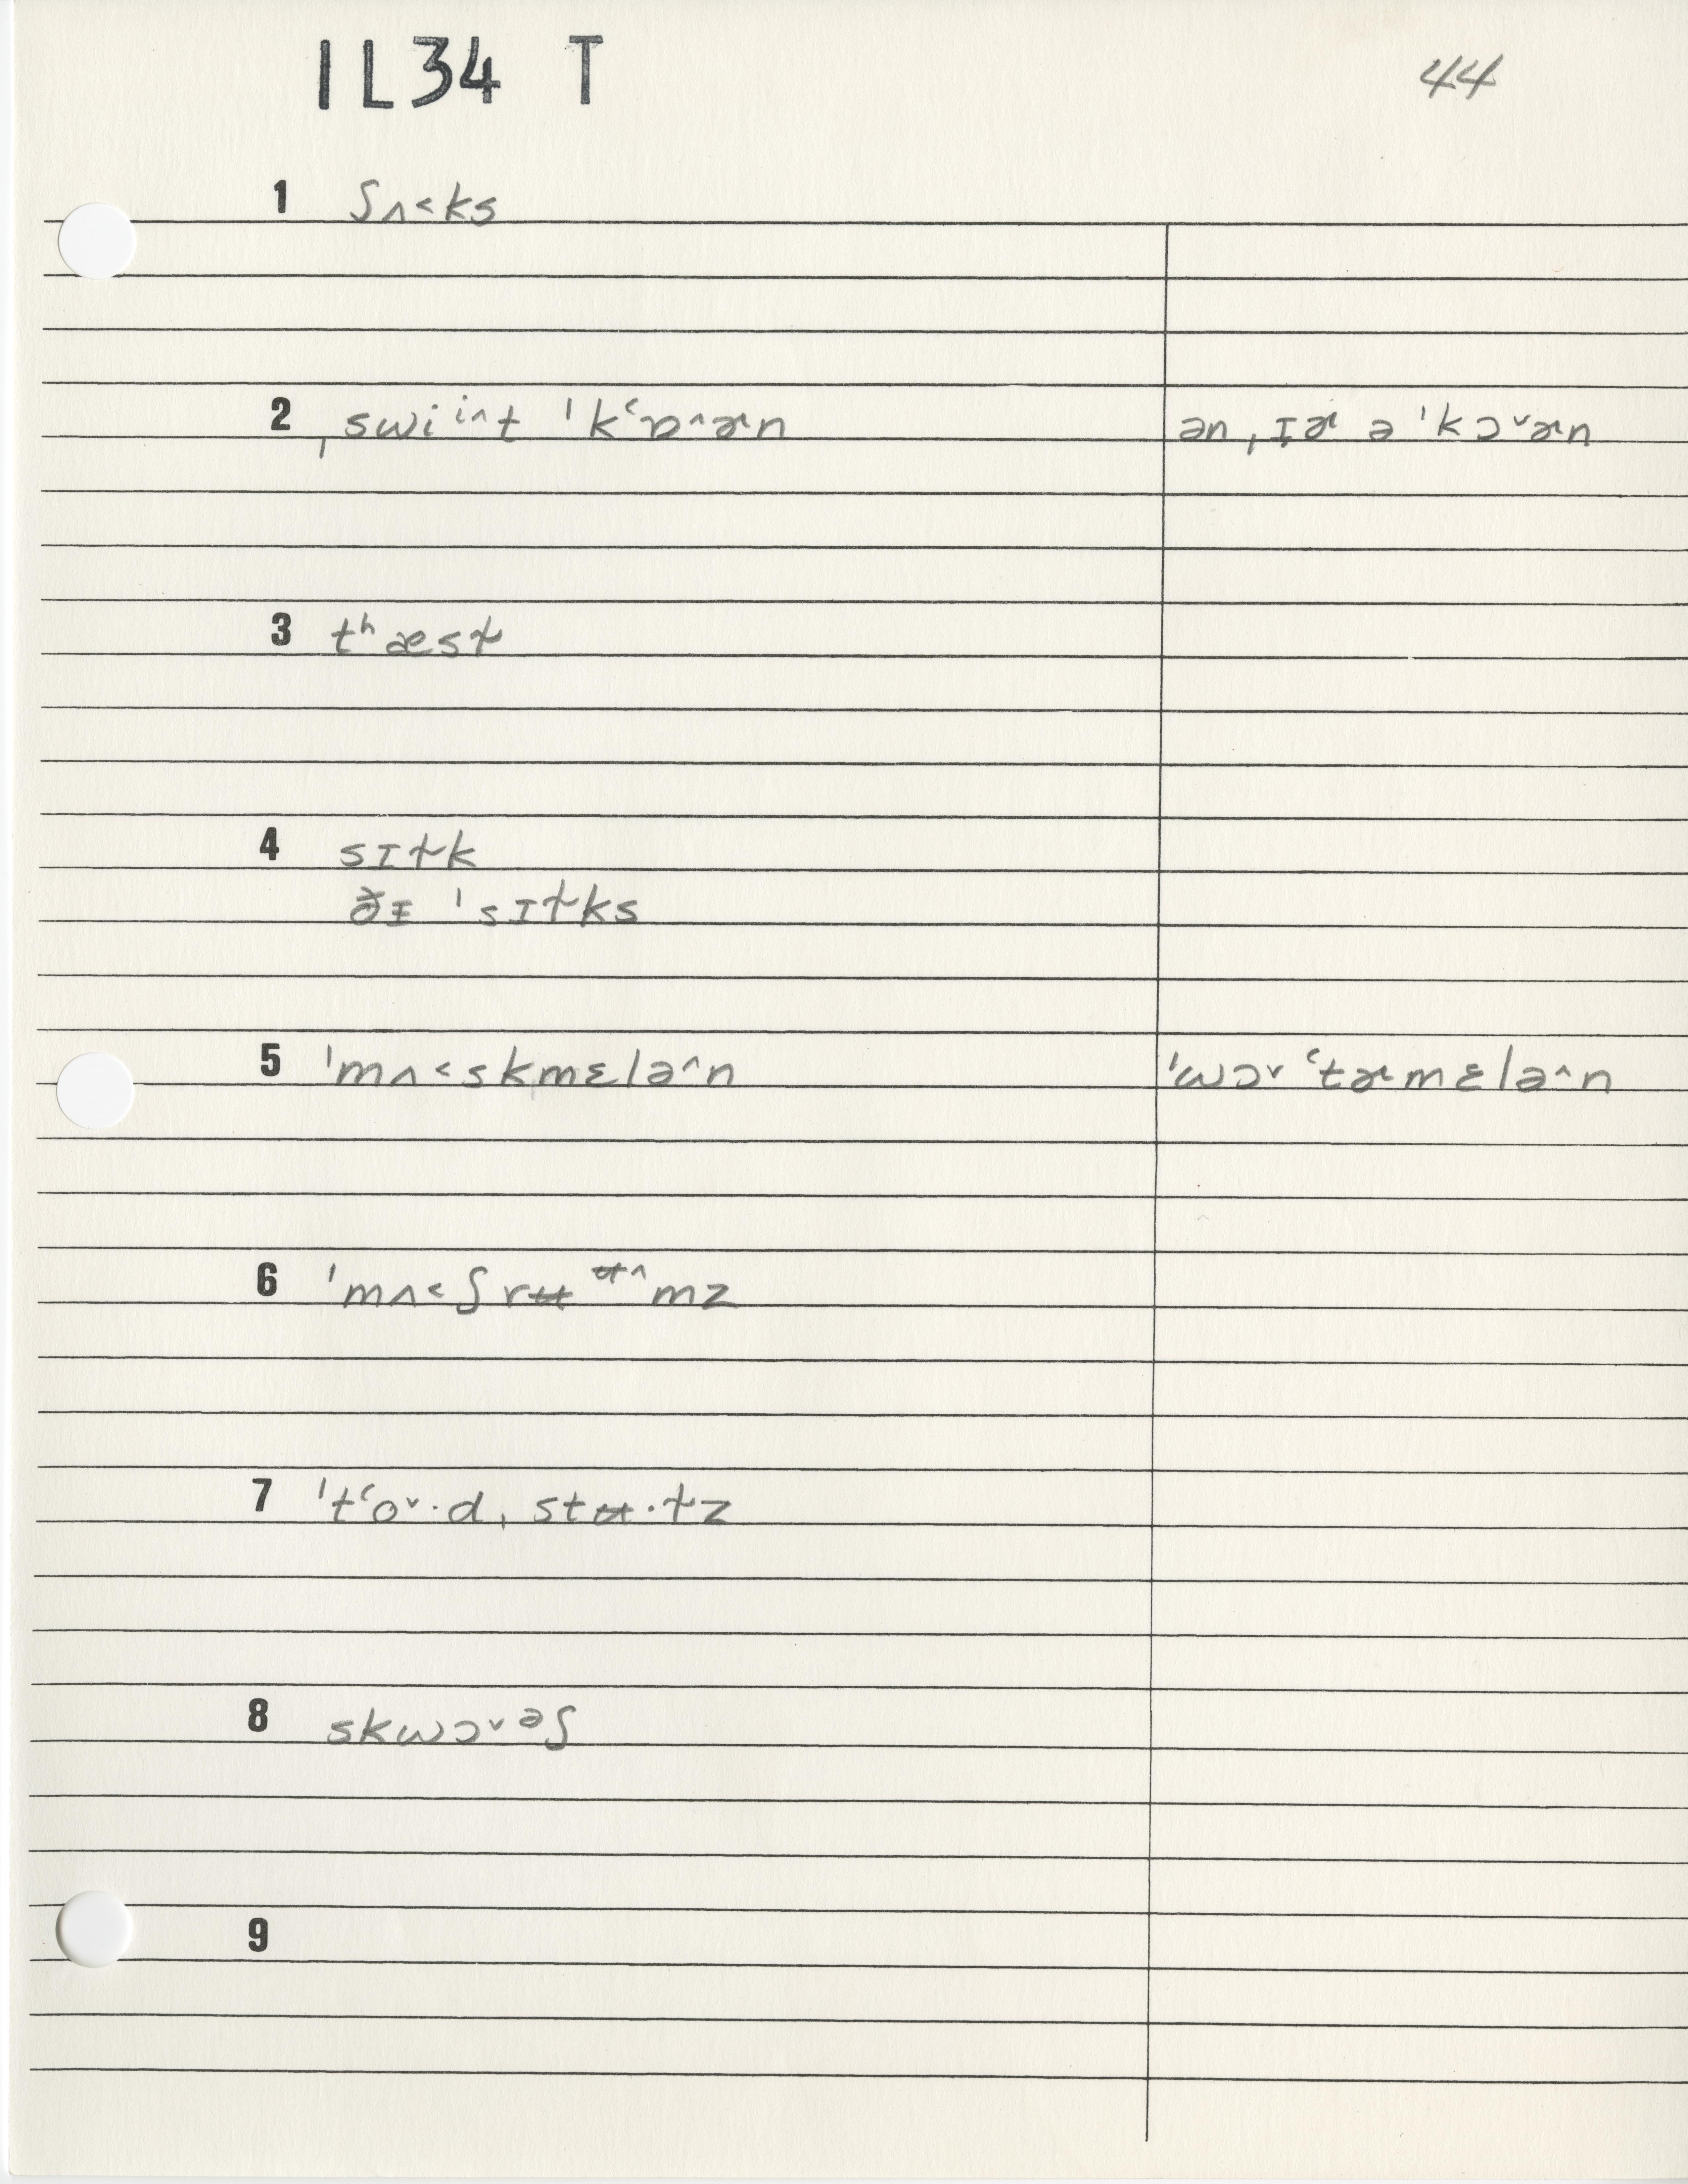 IL34 T
44
1 ʃʌ˂ks
2 ˌswiiˆt ˈkʻɒˆɚn
ən ˌɪɚ ə ˈkɔˇɚn
3 tʰæsɫ
4 sɪɫk
ðᵻ ˈsɪɫks
5 ˈmʌ˂skmɛləˆn
ˈwɔˇʻtɚmɛləˆn
6 ˈmʌ˂ʃrʉʉˆmz
7 ˈtʻoˇ·dˌstʉ·ɫz
8 skwɔˇəʃ
9